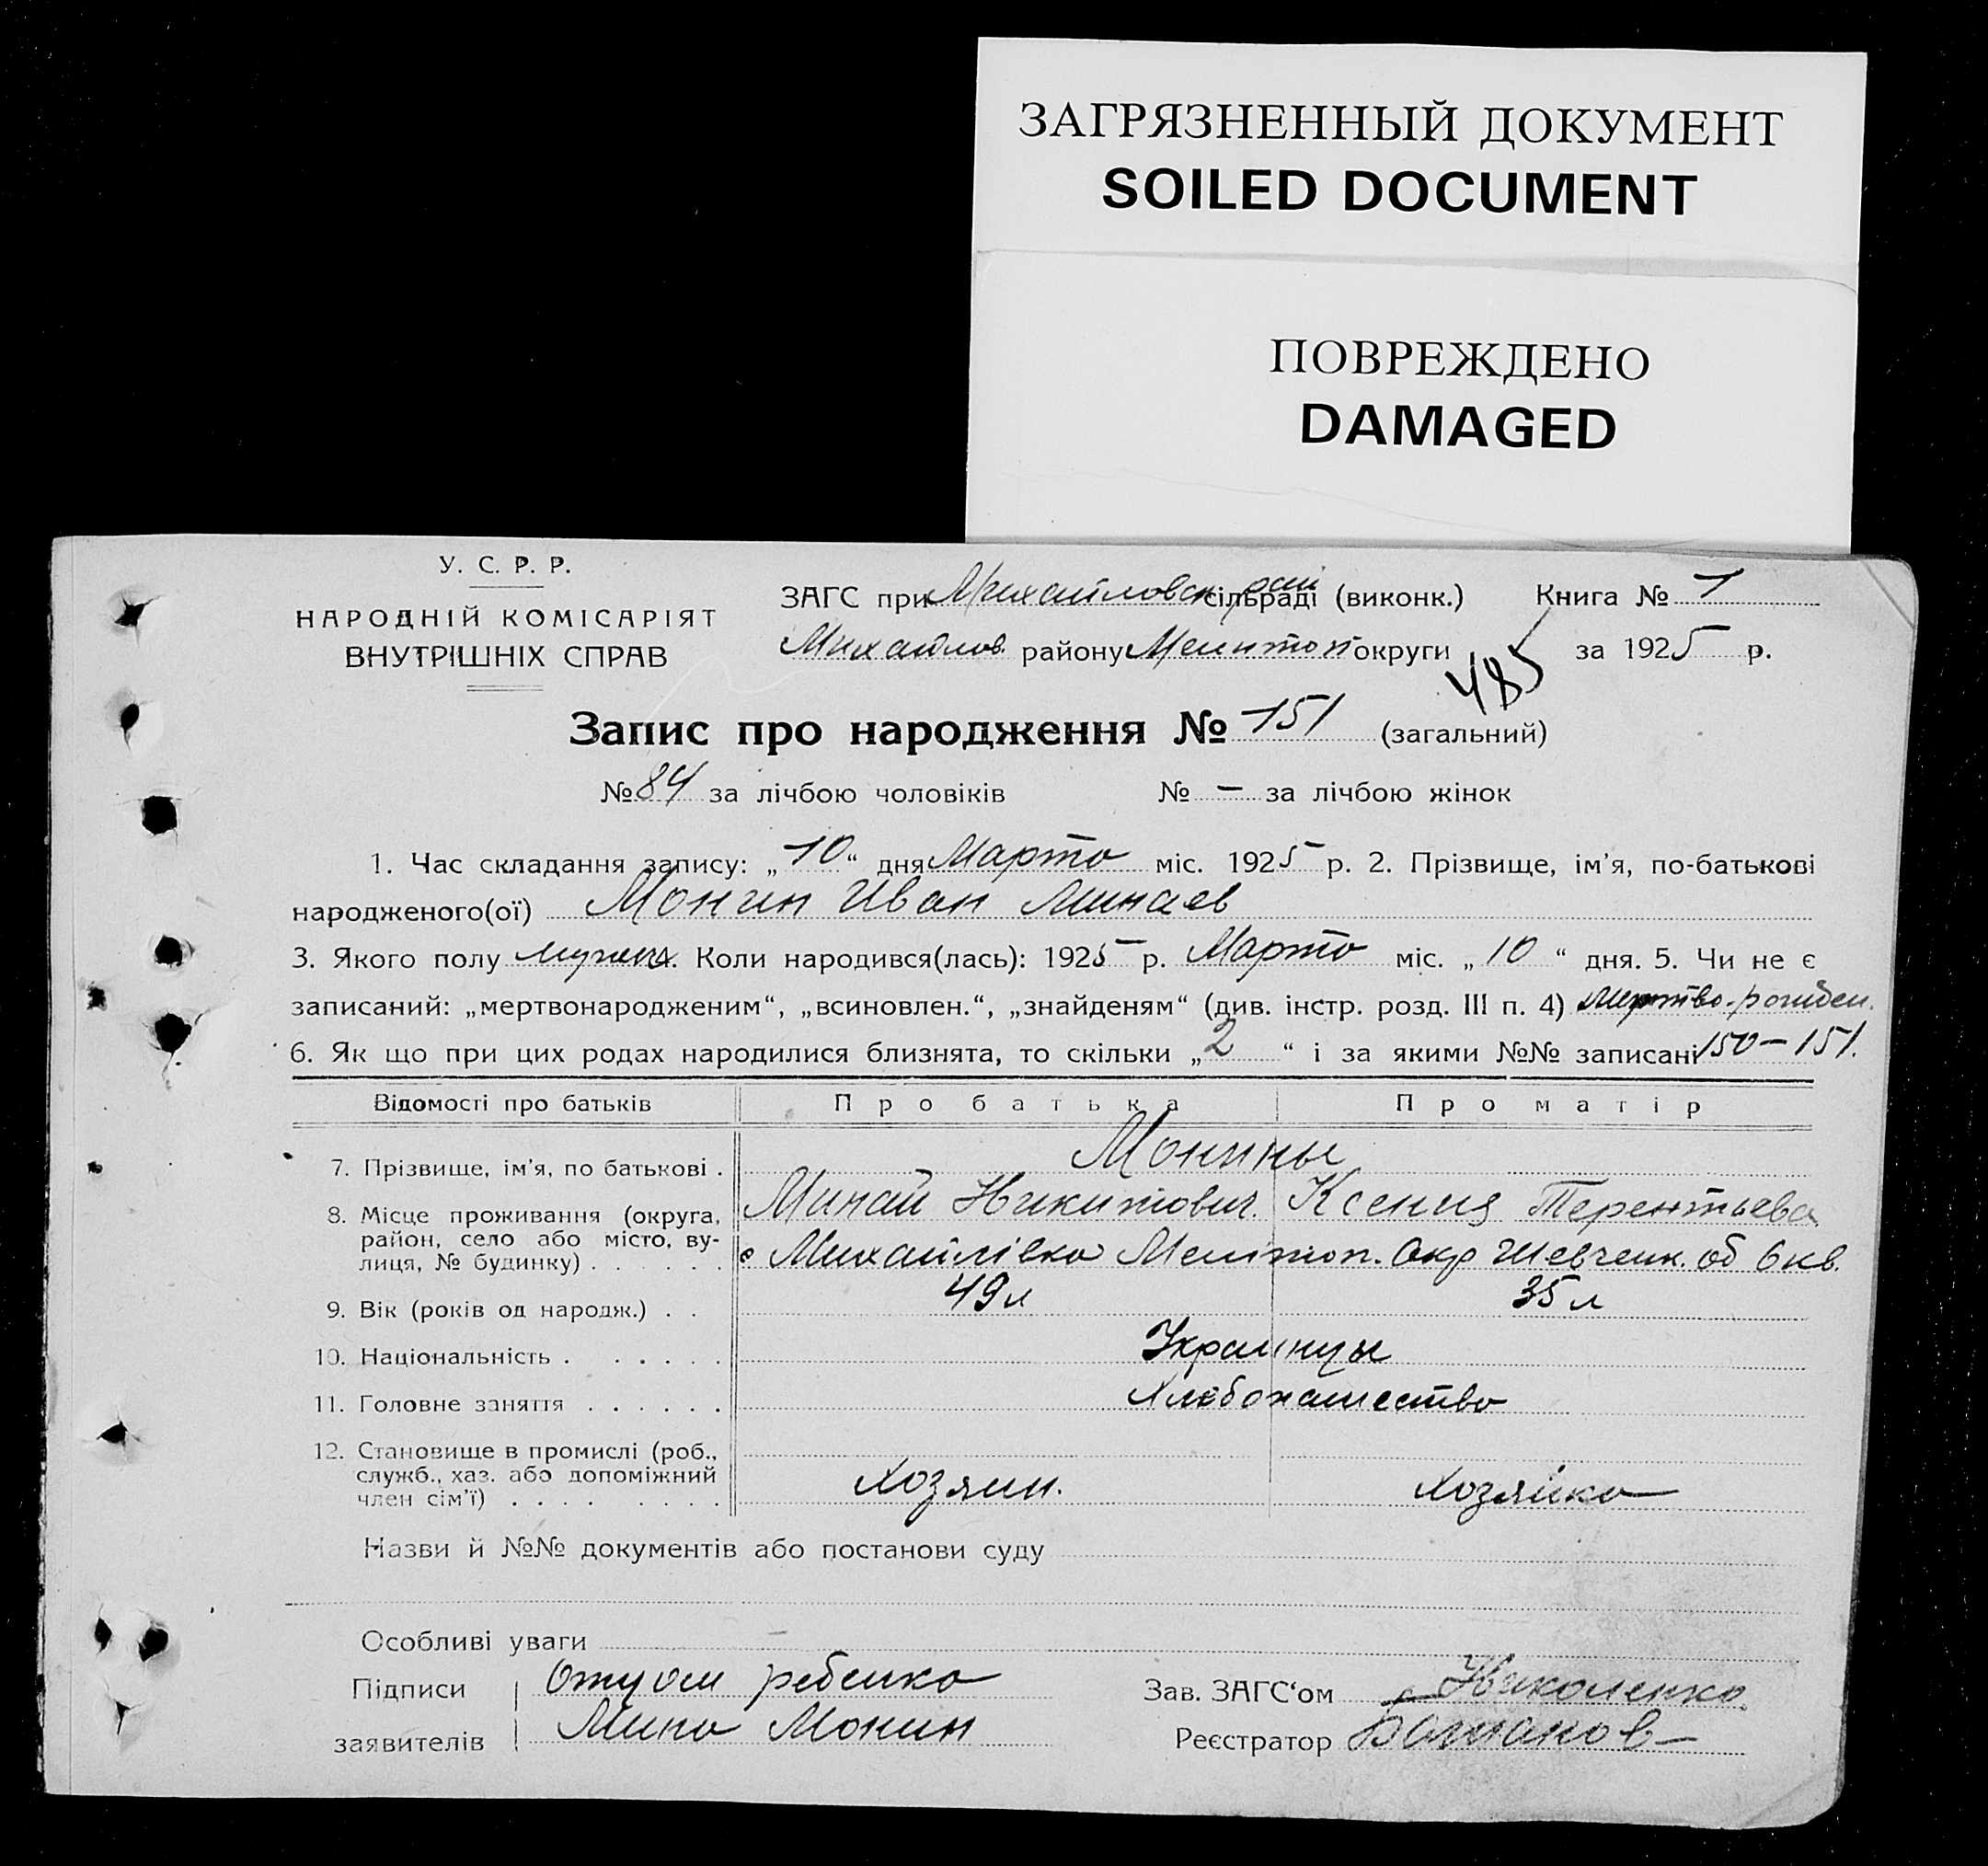 ЗАГРЯЗНЕННЫЙ ДОКУМЕНТ
SOILED DOCUMENT
ПОВРЕЖДЕНО
DAMAGED
У. С. Р. Р.
НАРОДНІЙ КОМІСАРІЯТ
ВНУТРІШНІХ СПРАВ
ЗАГС при Михайловск рай сільраді (виконк.) Книга № 1
Михайлов. району Мелитоп округи за 1925 р.
485
Запис про народження № 151 (загальний)
№ 84 за лічбою чоловіків № — за лічбою жінок
1. Час складання запису: „10“ дня Марта міс. 1925 р. 2. Прізвище, ім’я, по-батькові
народженого(ої) Монин Иван Минаев
3. Якого полу мужск. Коли народився(лась): 1925 р. Марта міс. „10“ дня. 5. Чи не є
записаний: „мертвонародженим“, „всиновлен.“, „знайденям“ (див. інстр. розд. III п. 4) Мертво-рожден.
6. Як що при цих родах народилися близнята, то скільки „2“ і за якими №№ записані 150—151.
Відомості про батьків Про батька Про матір
7. Прізвище, ім’я, по батькові . Монины
Минай Никитович. Ксения Терентьева
8. Місце проживання (округа,
район, село або місто, ву-
лиця, № будинку) . . . . . . с Михайлівка Мелітоп. Окр Шевченк. об 6 кв.
9. Вік (років од народж.) . . 49 л 35 л
10. Національність . . . . . . Украинцы
11. Головне заняття . . . . . . Хлебопашество
12. Становище в промислі (роб.,
служб., хаз. або допоміжний
член сім’ї) . . . . . . . . Хозяин. Хозяйка
Назви й №№ документів або постанови суду
Особливі уваги —
Підписи Отцом ребенка Зав. ЗАГС‘ом Николенко
заявителів Мина Монин Реєстратор